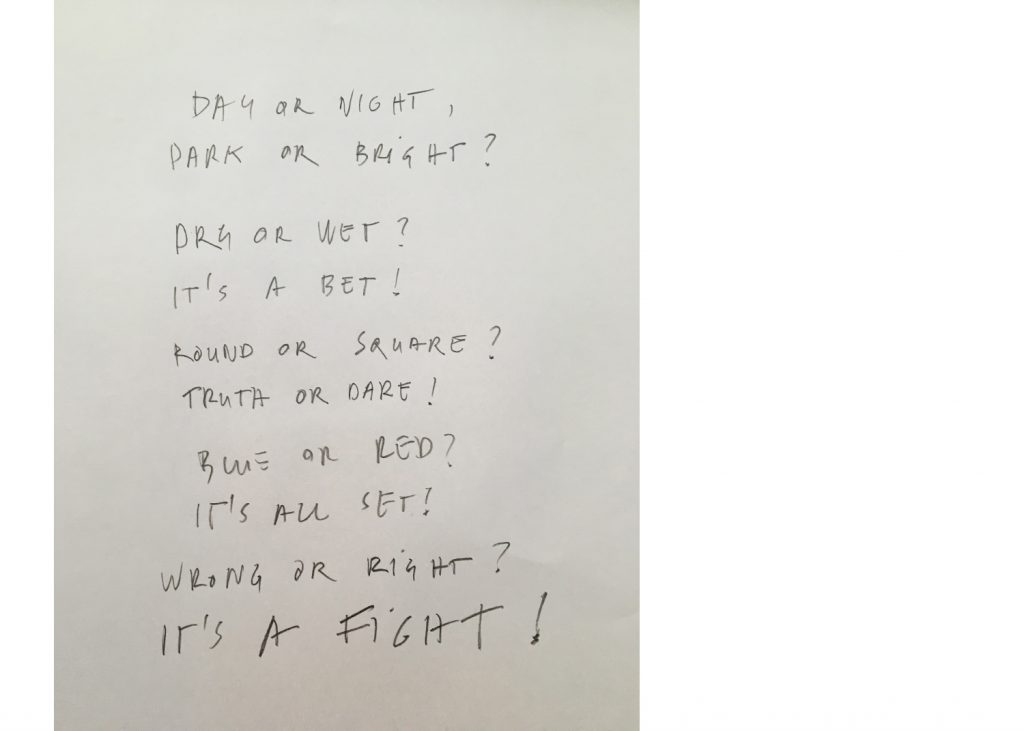 DAY OR NIGHT,
DARK OR BRIGHT?
DRY OR WET?
IT'S A BET!
ROUND OR SQUARE?
TRUTH OR DARE!
BLUE OR RED?
IT'S ALL SET!
WRONG OR RIGHT?
IT'S A FIGHT!